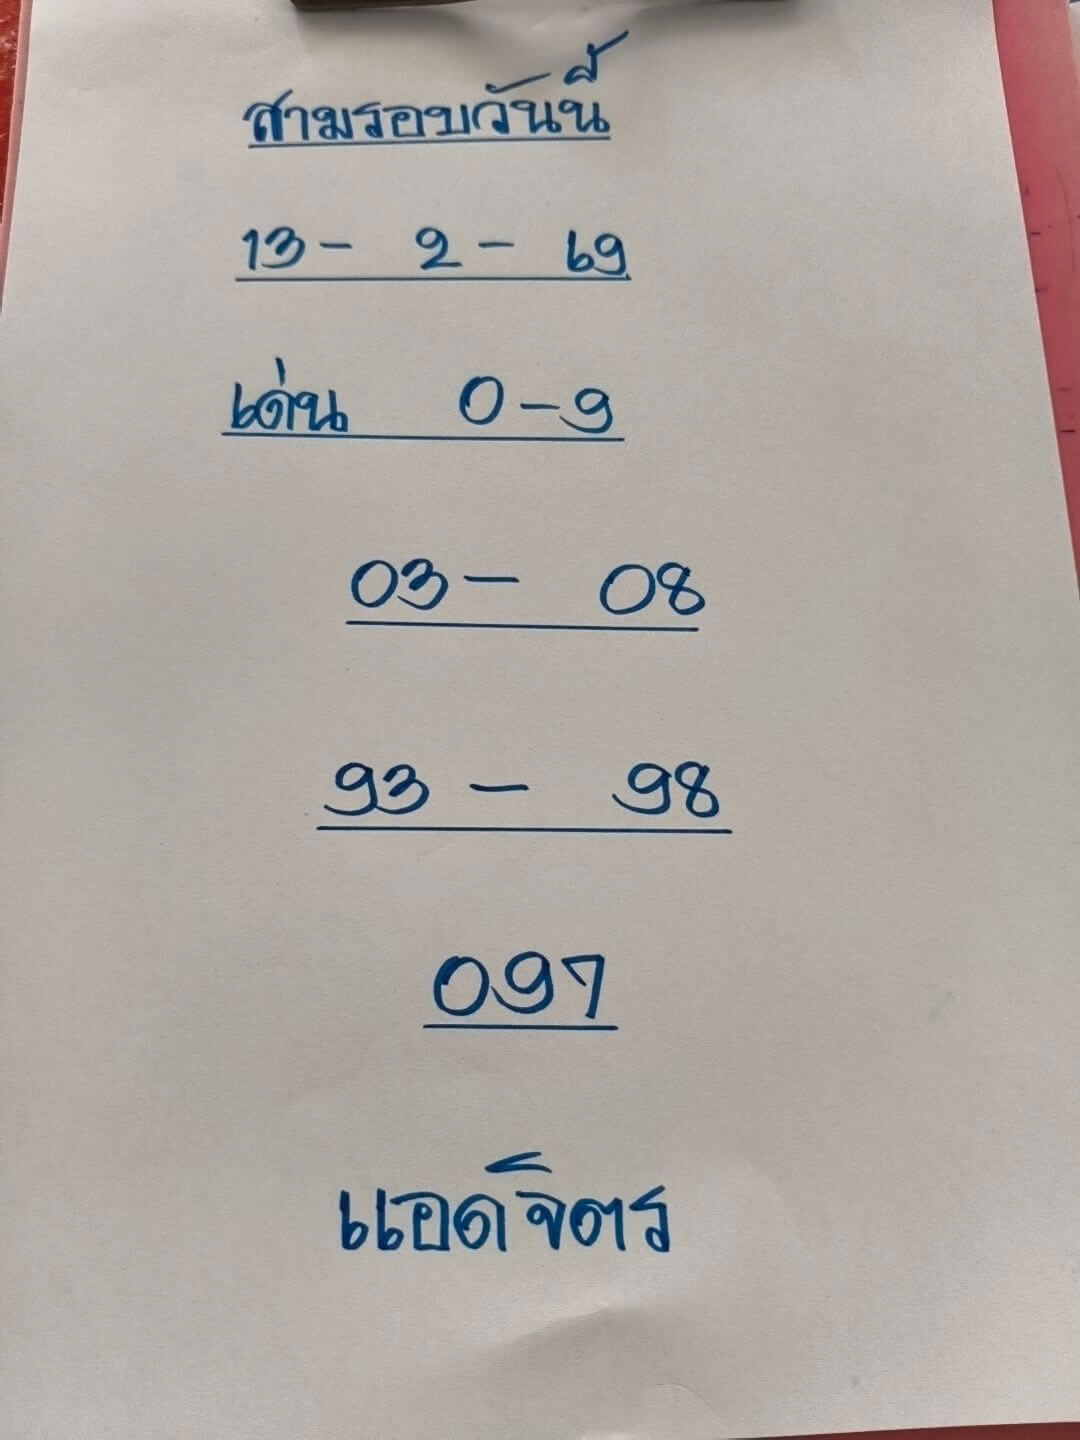 สามรอบวันนี้
13 - 2 - 69
เด่น 0 - 9
03 - 08
93 - 98
097
แอดจิตร